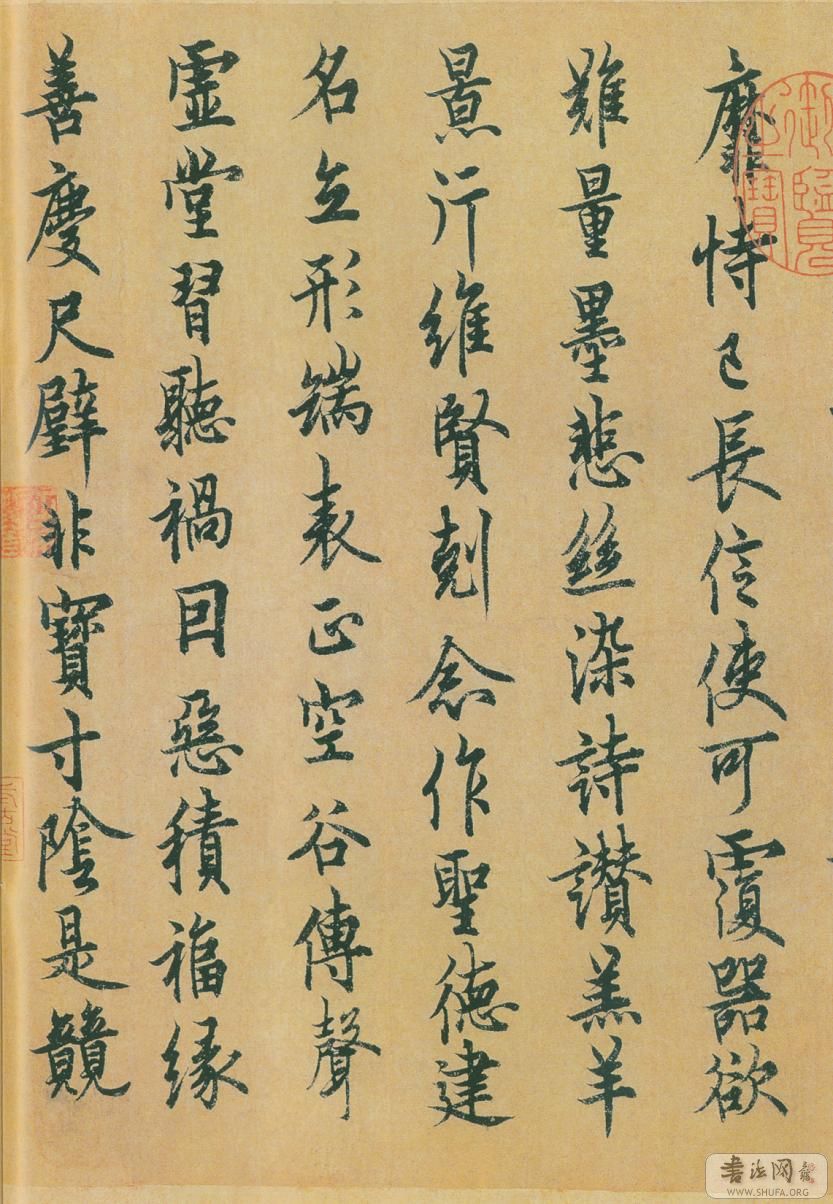 靡恃己長信使可覆器欲
難量墨悲絲染詩讚羔羊
景行維賢剋念作聖德建
名立形端表正空谷傳聲
虛堂習聽禍因惡積福緣
善慶尺璧非寶寸陰是競
書法网
WWW.SHUFA.ORG